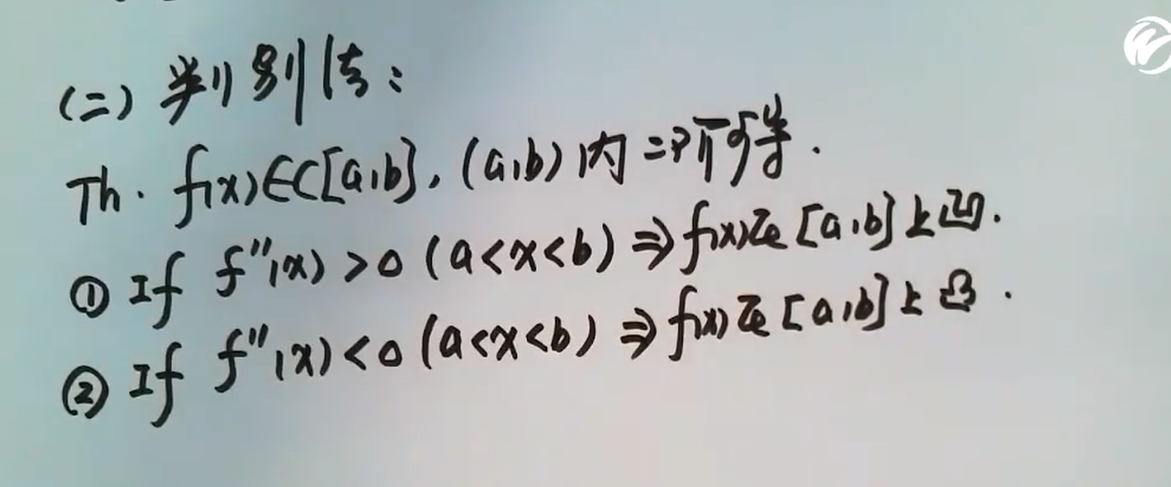 (二) 判别法:
Th. f(x)∈C[a,b], (a,b)内二阶可导.
① If f''(x)>0 (a<x<b) ⇒ f(x)在[a,b]上凹.
② If f''(x)<0 (a<x<b) ⇒ f(x)在[a,b]上凸.